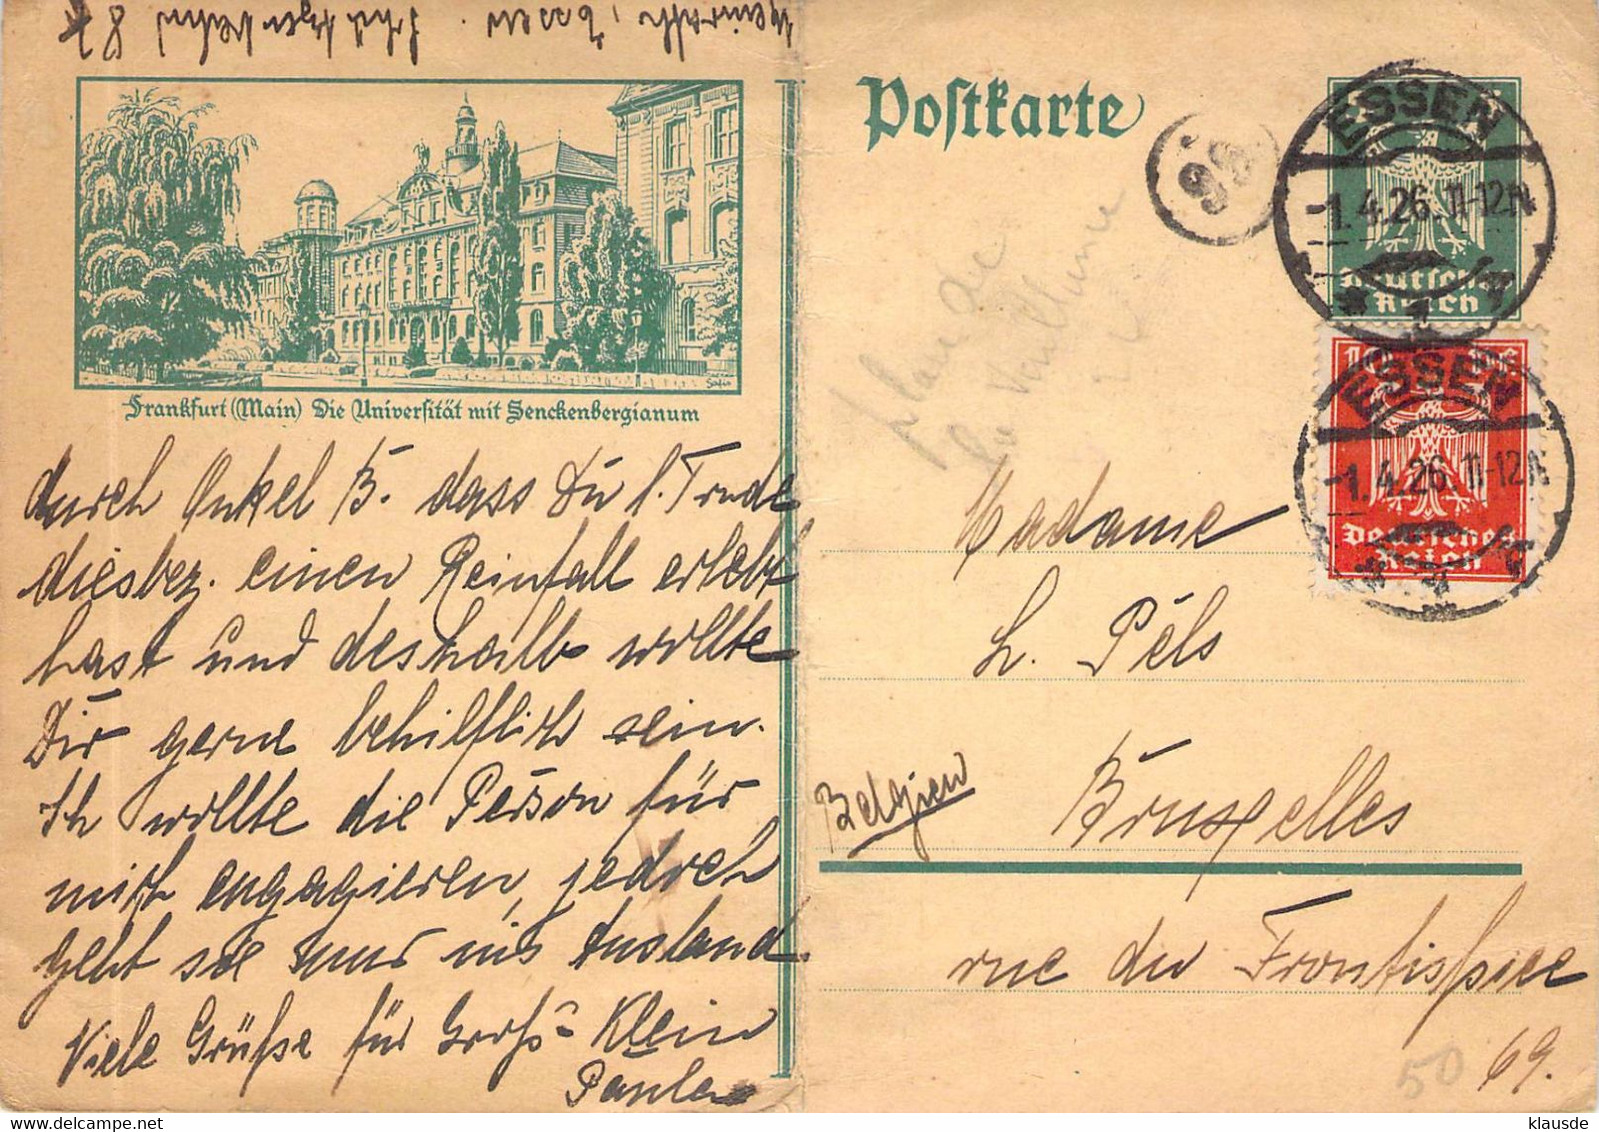 Essen
Frankfurt (Main) Die Universität mit Senckenbergianum
durch Onkel B. dass Du l. Trude
diesbez. einen Reinfall erlebt
hast und deshalb wollte
Dir gerne behilflich sein.
Ich wollte die Person für
mich engagieren, jedoch
geht sie nur ins Ausland.
Viele Grüße für Groß- Klein
Paula
Postkarte
98
ESSEN
-1.4.26.11-12N
Deutsches
Reich
ESSEN
-1.4.26.11-12N
Deutsches
Reich
Madame
L. Pels
Belgien
Bruxelles
rue du Frontispice
69.
50
klausde